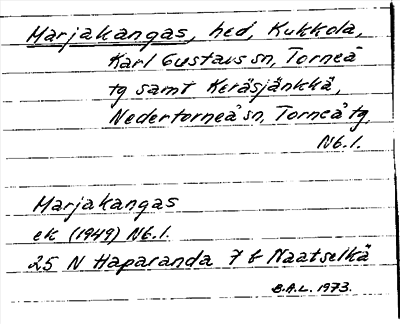 Marjakangas, hed, Kukkola,
Karl Gustavs sn, Torneå
tg samt Keräsjänkkä,
Nedertorneå sn, Torneå tg.
Nb.l.
Marjakangas
ek (1949) Nb.l.
25 N Haparanda 7 b Naatselkä
B.A.L. 1973.